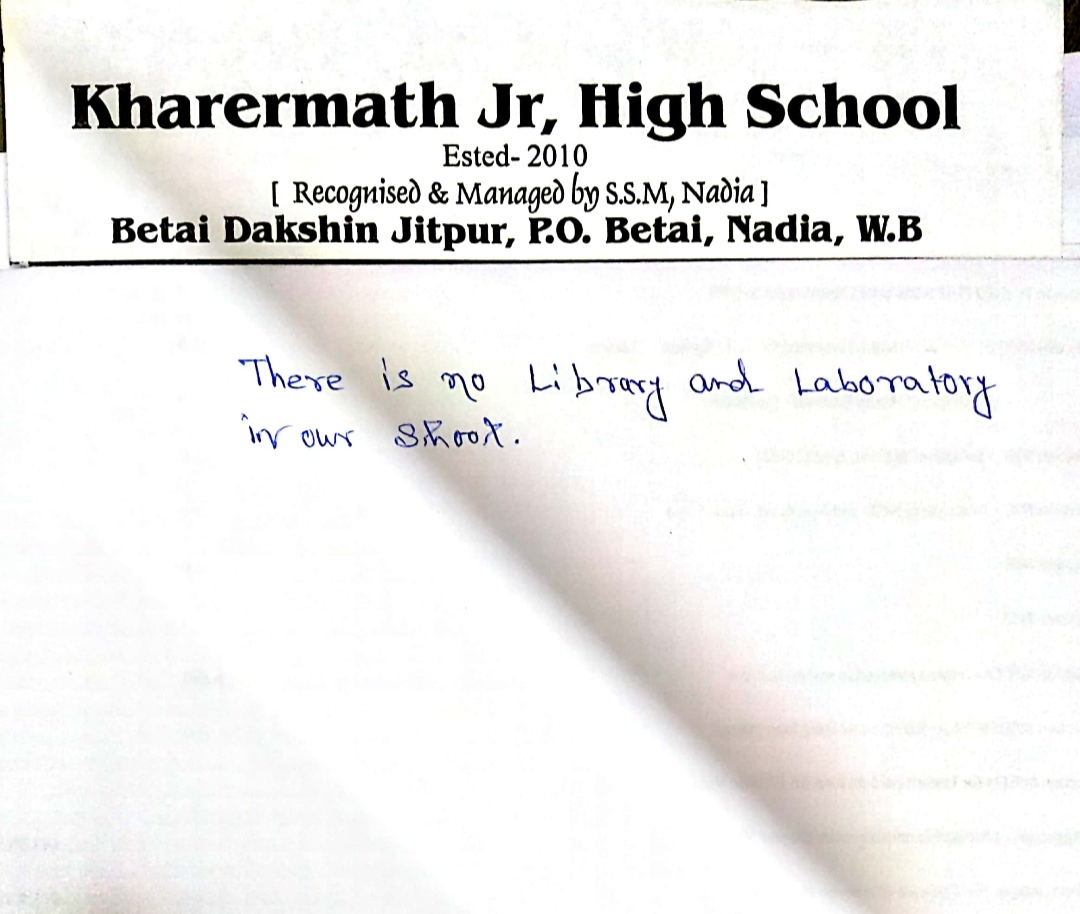 Kharermath Jr, High School
Ested- 2010
[ Recognised & Managed by S.S.M, Nadia ]
Betai Dakshin Jitpur, P.O. Betai, Nadia, W.B
There is no Library and Laboratory
in our Shool.